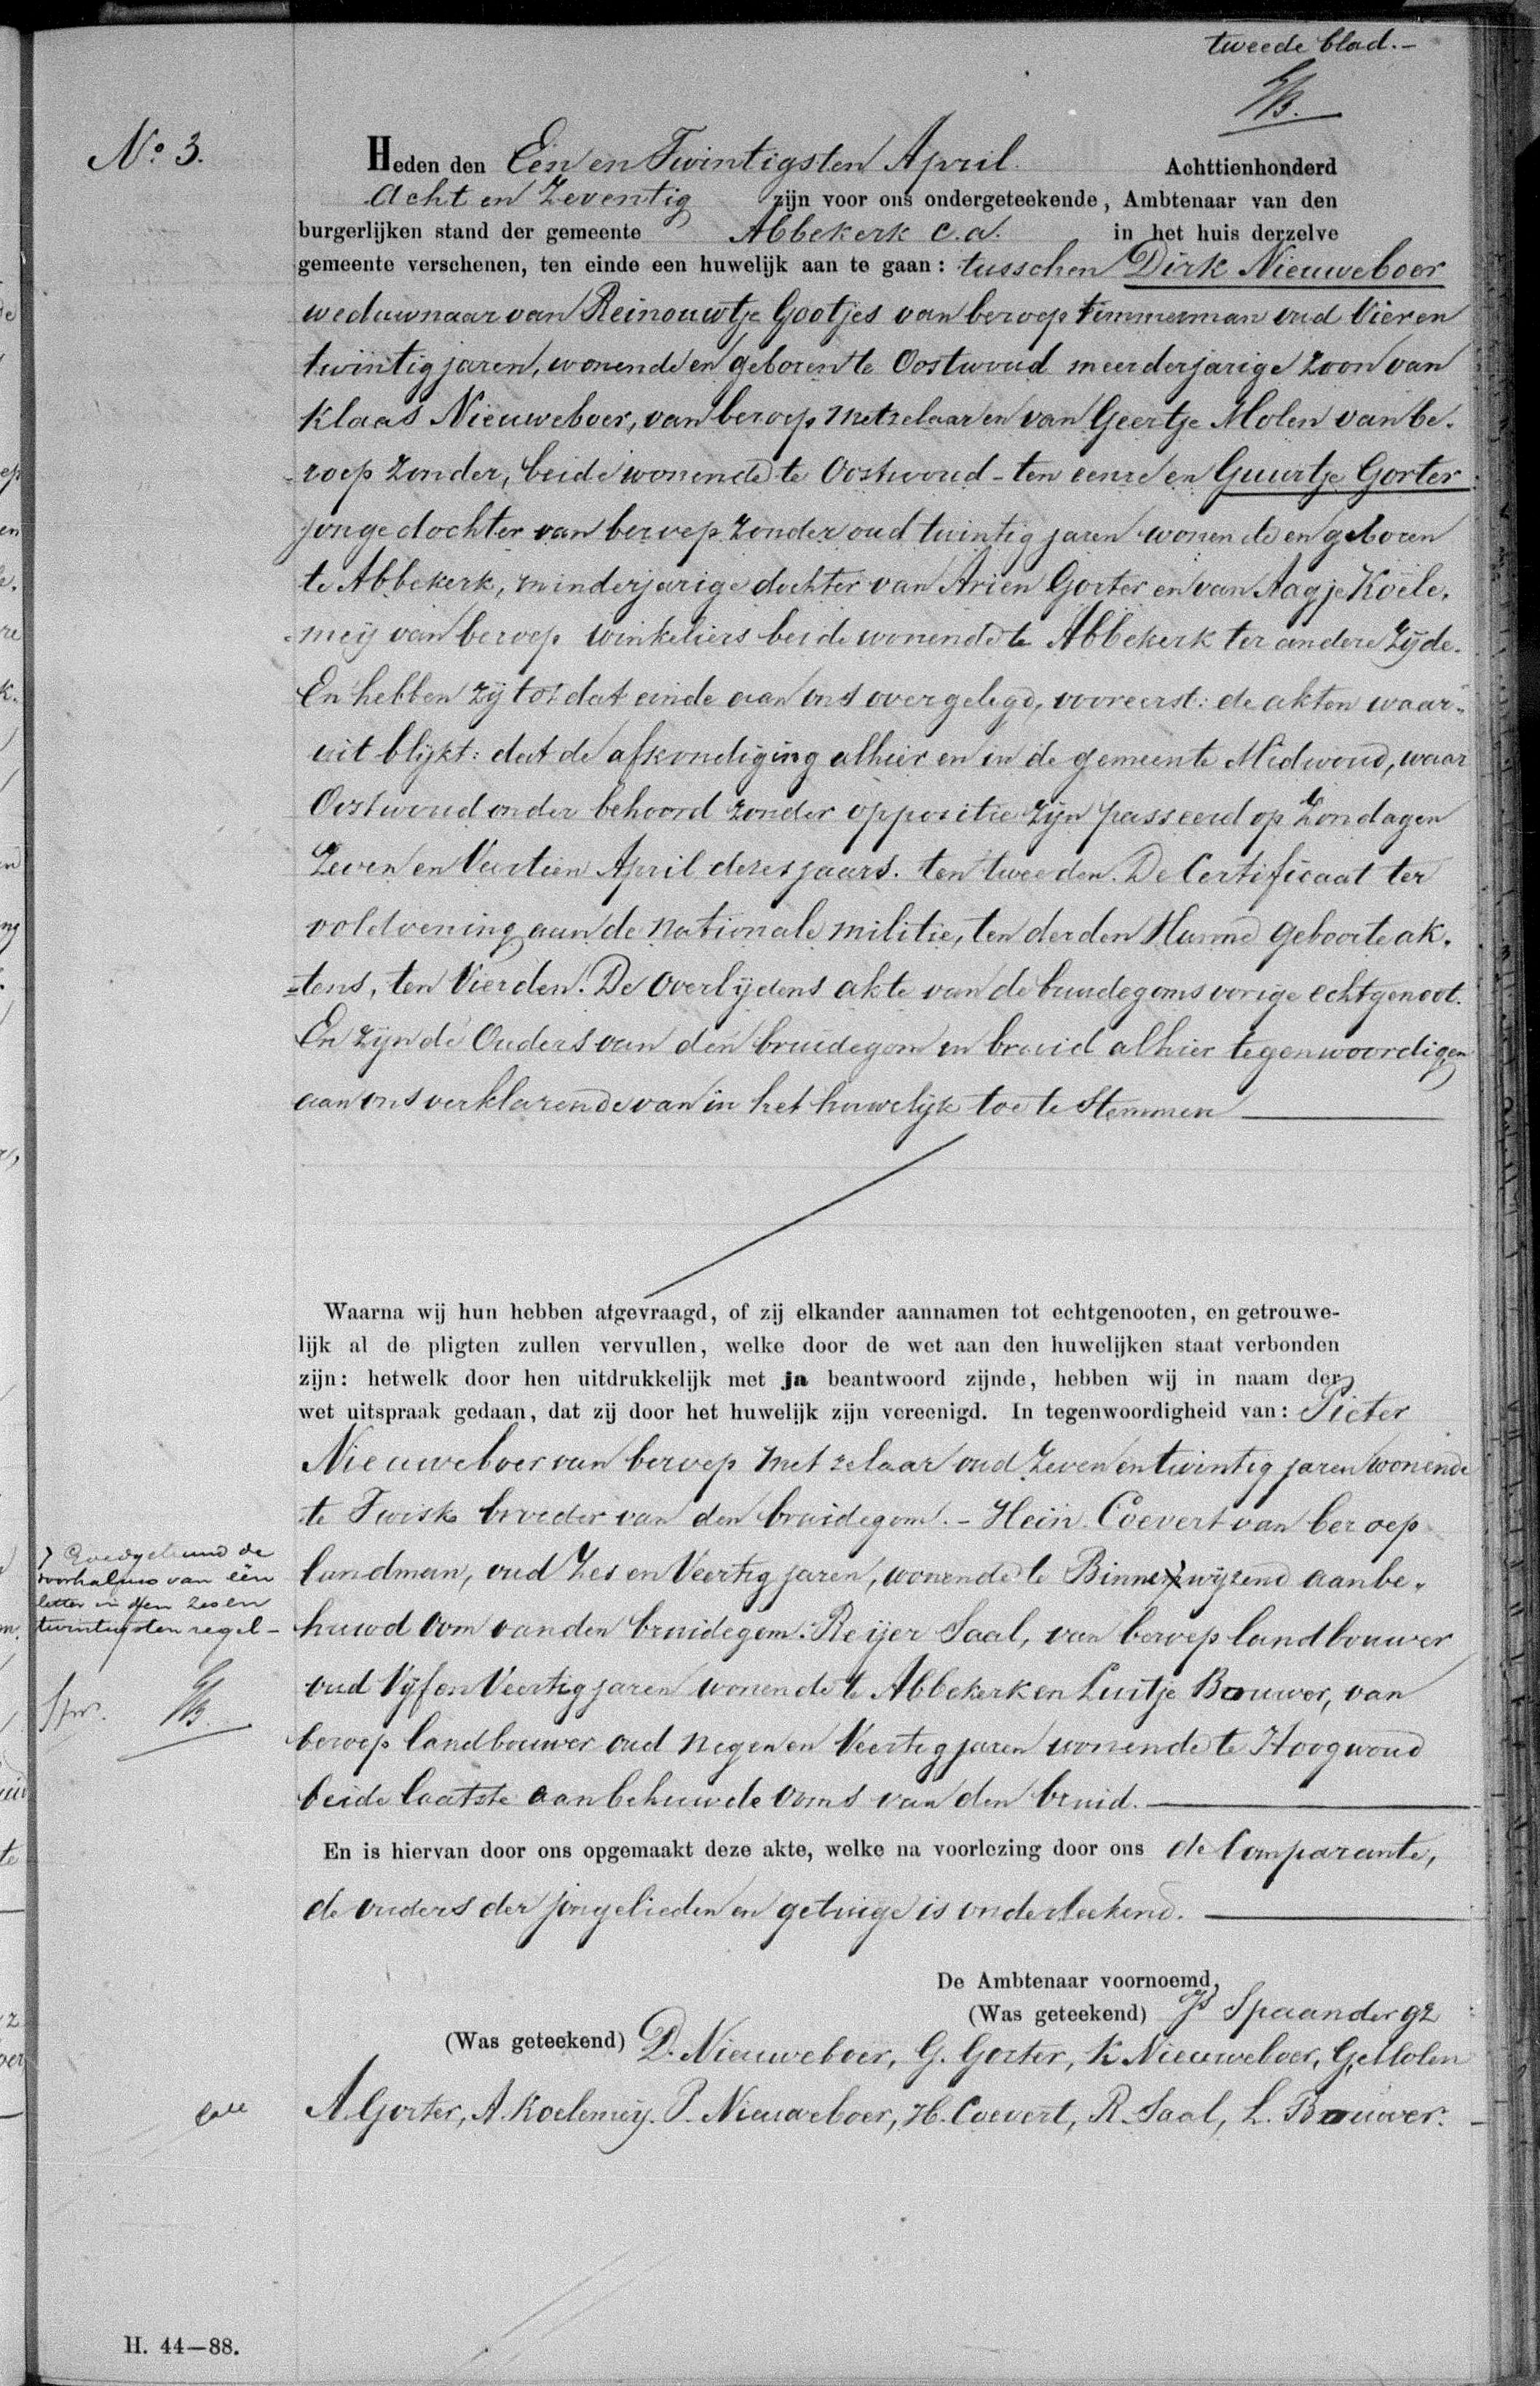 tweede blad.-
No. 3.
Heden den Een en Twintigsten April Achttienhonderd
Acht en Zeventig zijn voor ons ondergeteekende, Ambtenaar van den
burgerlijken stand der gemeente Abbekerk c.a. in het huis derzelve
gemeente verschenen, ten einde een huwelijk aan te gaan: tusschen Dirk Nieuweboer
weduwnaar van Reinouwtje Gootjes van beroep timmerman oud Vier en
twintig jaren, wonende en geboren te Oostwoud meerderjarige zoon van
Klaas Nieuweboer, van beroep Metzelaar en van Geertje Molen van be-
roep zonder, beide wonende te Oostwoud - ten eenre en Guurtje Gorter
jonge dochter van beroep zonder oud twintig jaren wonende en geboren
te Abbekerk, minderjarige dochter van Arien Gorter en van Aagje Koele-
meij van beroep winkeliers beide wonende te Abbekerk ter andere Zijde.
En hebben zij tot dat einde aan ons overgelegd, vooreerst: de akten waar-
uit blijkt: dat de afkondiging alhier en in de gemeente Midwoud, waar
Oostwoud onder behoord zonder oppositie zijn passeerd op Zondagen
Zeven en Veertien April dezes jaars. ten tweeden. De Certificaat ter
voldoening aan de nationale militie, ten derden Hunne geboorte ak-
=tens, ten Vierden. De Overlijdens akte van de bruidegoms vorige echtgenoot.
En zijn de Ouders van den bruidegom en bruid alhier tegenwoordigen
aan ons verklarende van in het huwelijk toe te Stemmen
Waarna wij hun hebben afgevraagd, of zij elkander aannamen tot echtgenooten, en getrouwe-
lijk al de pligten zullen vervullen, welke door de wet aan den huwelijken staat verbonden
zijn: hetwelk door hen uitdrukkelijk met ja beantwoord zijnde, hebben wij in naam der
wet uitspraak gedaan, dat zij door het huwelijk zijn vereenigd. In tegenwoordigheid van: Pieter
Nieuweboer van beroep metzelaar oud Zeven en twintig jaren wonende
te Twisk broeder van den bruidegom. - Hein Coevert van beroep
landman, oud Zes en Veertig jaren, wonende te Binnenwijzend aanbe-
huwd oom van den bruidegom. Reijer Saal, van beroep landbouwer
oud Vijf en Veertig jaren wonende te Abbekerk en Luitje Bouwer, van
beroep landbouwer oud negen en Veertig jaren wonende te Hoogwoud
beide laatste aanbehuwde ooms van den bruid.
Goedgekeurd de
doorhaling van één
letter in den zes en
twintigsten regel-
Spr.
En is hiervan door ons opgemaakt deze akte, welke na voorlezing door ons de Comparante,
de ouders der jongelieden en getuige is onderteekend.
De Ambtenaar voornoemd,
(Was geteekend) Js Spaander gz
(Was geteekend) D. Nieuweboer, G. Gorter, K Nieuweboer, G. Molen
A. Gorter, A. Koelemeij. P. Nieuweboer, H. Coevert, R. Saal, L. Bouwer.
H. 44—88.